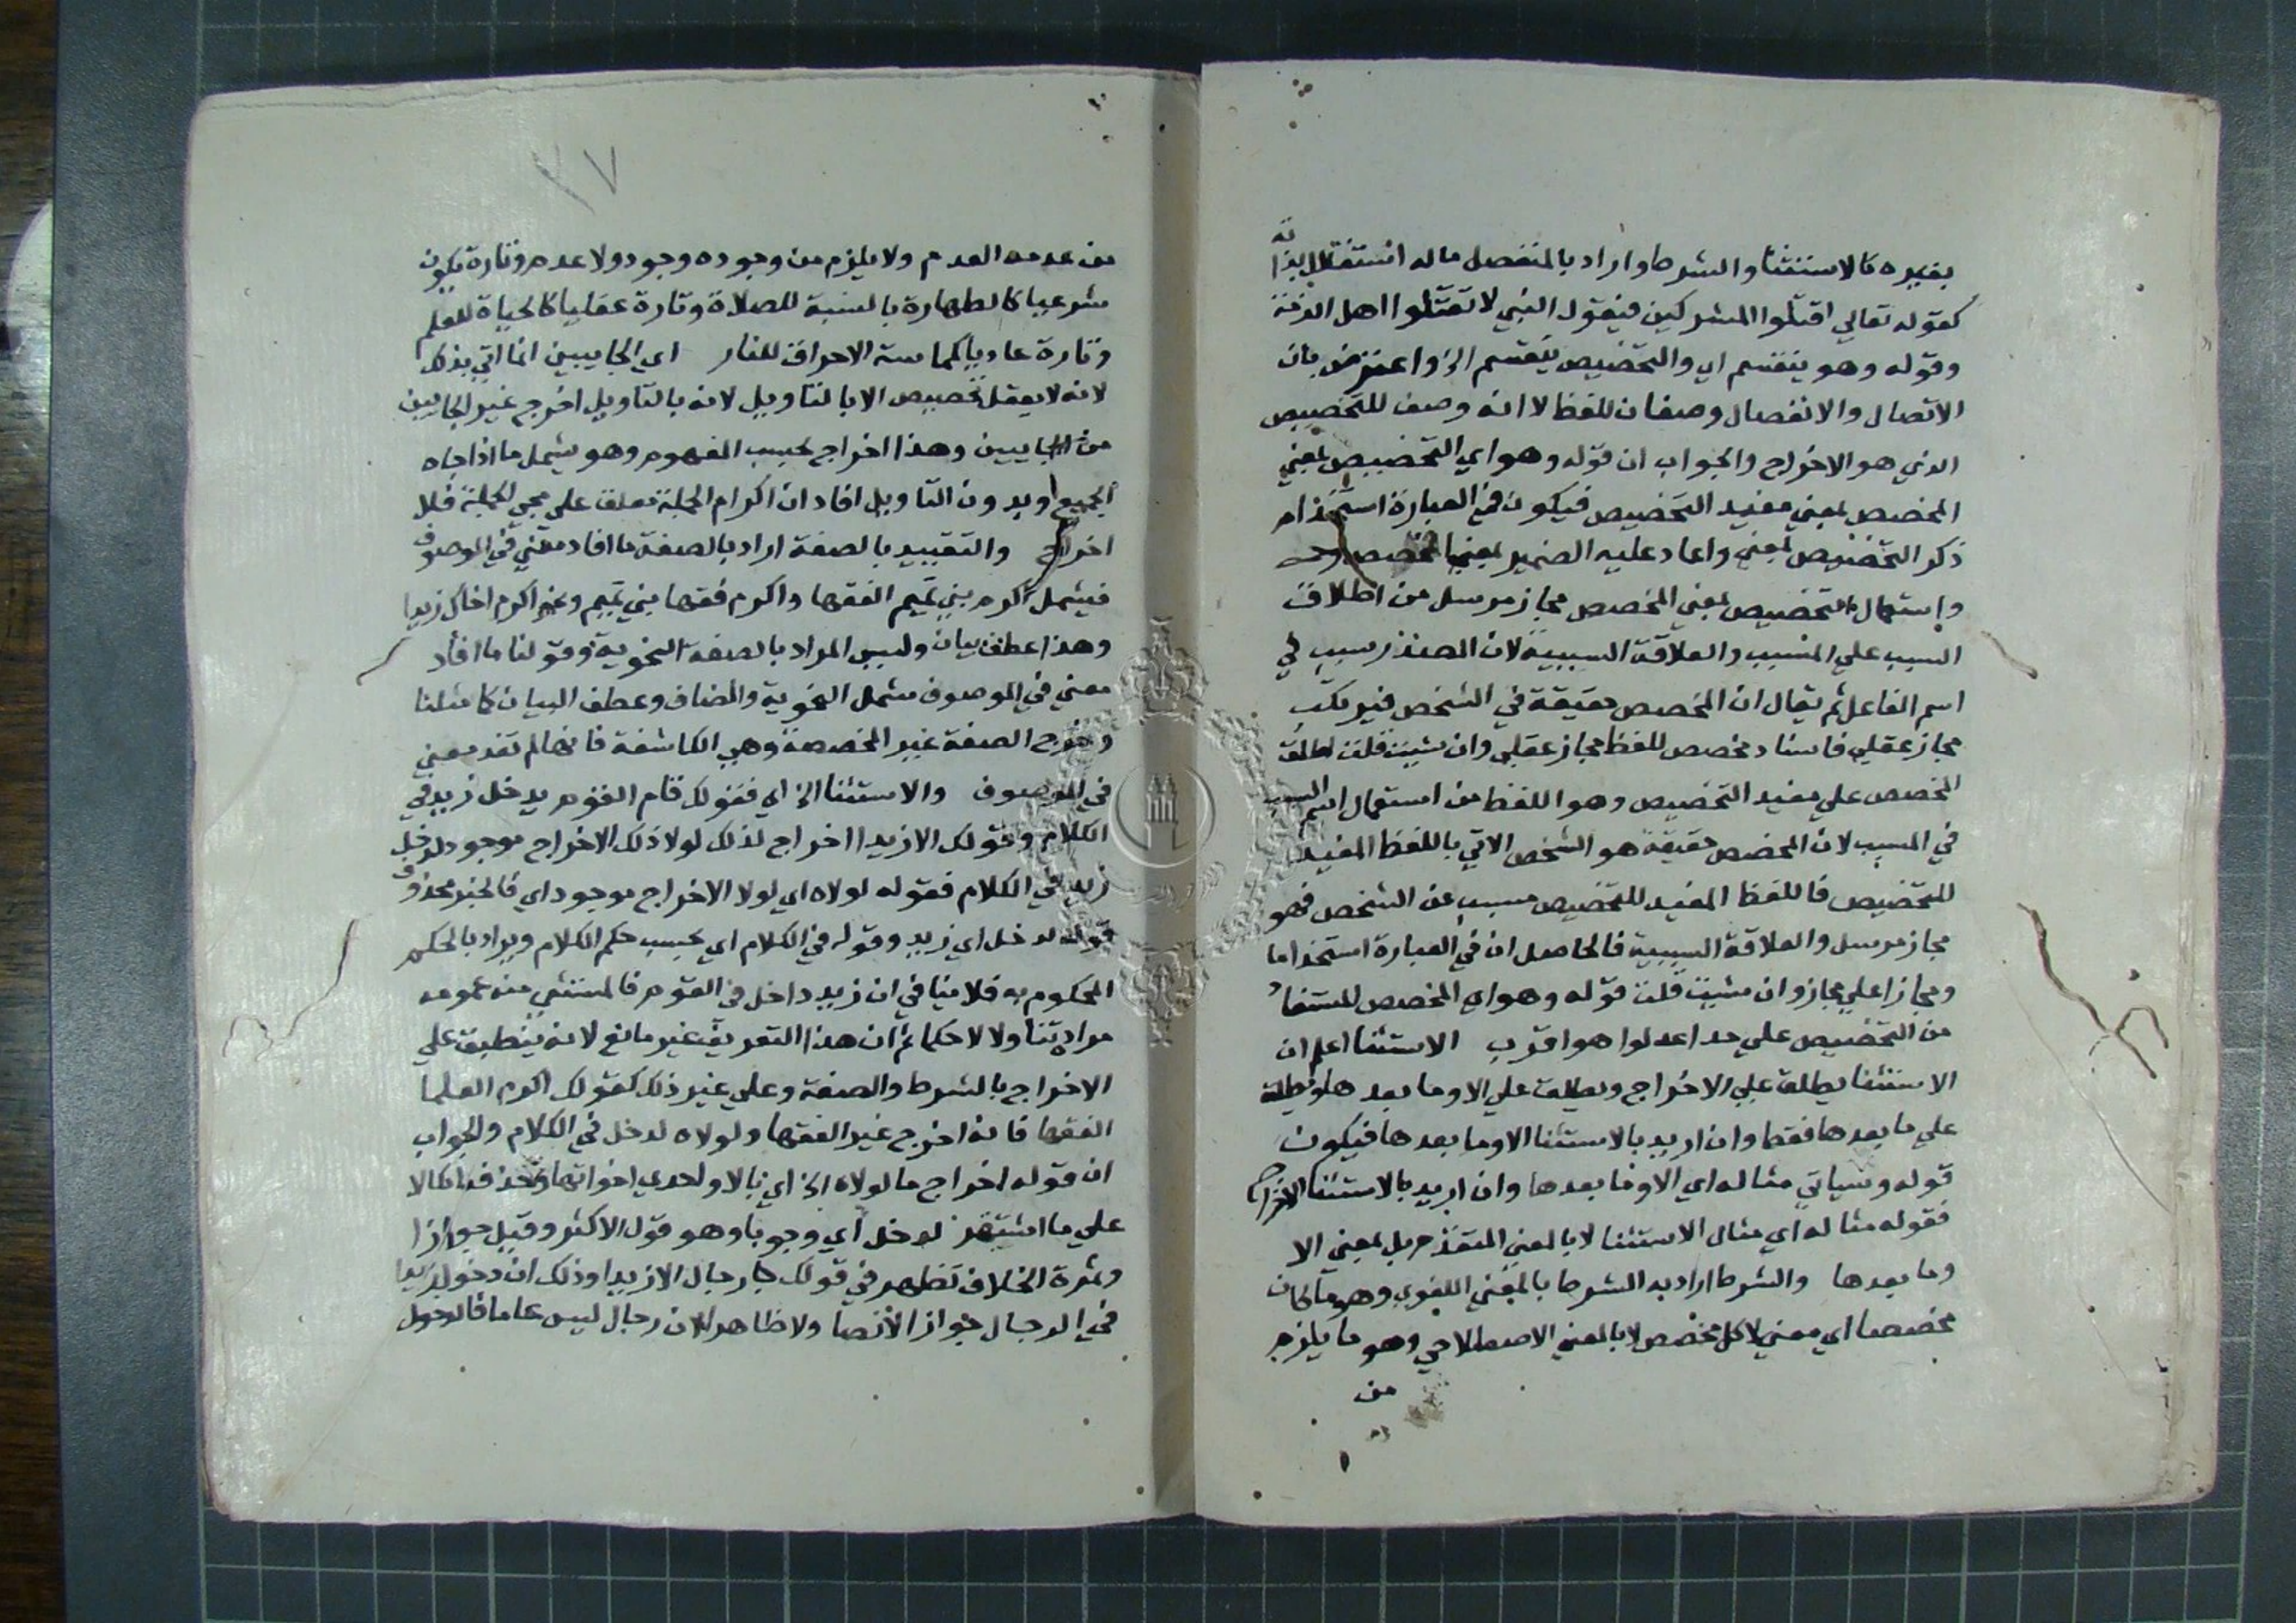 بغيره كالاستثنا والشرط واراد بالمنفصل ماله استقلال بذاته
كقوله تعالي اقتلوا المشركين فيقول النبي لا تقتلوا اهل الذمة
وقوله وهو ينقسم اي والتخصيص ينقسم الخ واعترض بان
الاتصال والانفصال وصفان للفظ لا انه وصف للتخصيص
الذي هو الاخراج والجواب ان قوله وهو اي التخصيص بمعني
المخصص بمعني مفيد التخصيص فيكون في العبارة استخدام
ذكر التخصيص بمعني واعاد عليه الضمير بمعني المخصص
واستعمال التخصيص بمعني المخصص مجاز مرسل من اطلاق
السبب علي المسبب والعلاقة السببية لان المصدر سبب في
اسم الفاعل ثم يقال ان المخصص حقيقة في الشخص فيرتكب
مجاز عقلي فاسناد مخصص للفظ مجاز عقلي وان شيت قلت اطلق
المخصص علي مفيد التخصيص وهو اللفظ من استعمال اسم السبب
في المسبب لان المخصص حقيقة هو الشخص الاتي باللفظ المفيد
للتخصيص فاللفظ المفيد للتخصيص مسبب عن الشخص فهو
مجاز مرسل والعلاقة السببية فالحاصل ان في العبارة استخداما
ومجازا علي مجاز وان شيت قلت قوله وهو اي المخصص المستفاد
من التخصيص علي حد اعدلوا هو اقرب الاستثنا اعلم ان
الاستثنا يطلق علي الاخراج ويطلق علي الا وما بعدها ويطلق
علي ما بعدها فقط وان اريد بالاستثنا الا وما بعدها فيكون
قوله وسياتي مثاله اي الا وما بعدها وان اريد بالاستثنا الاخراج
فقوله مثاله اي مثال الاستثنا لا بالمعني المتقدم بل بمعني الا
وما بعدها والشرط اراد به الشرط بالمعني اللغوي وهو ما كان
مخصصا اي معني لا كل مخصص لا بالمعني الاصطلاحي وهو ما يلزم
من
٢٧
من عدمه العدم ولا يلزم من وجوده وجود ولا عدم وتارة يكون
شرعيا كالطهارة بالنسبة للصلاة وتارة عقليا كالحياة للعلم
وتارة عاديا كمماسة الاحراق للنار اي الجايين انما اتي بذلك
لانه لا يعقل تخصيص الا بالتاويل لانه بالتاويل اخرج غير الجايين
من الجايين وهذا اخراج بحسب المفهوم وهو يشمل ما اذا جاء
الجميع او بدون التاويل افاد ان اكرام الجملة معلق علي مجي الجملة فلا
اخراج والتقييد بالصفة اراد بالصفة ما افاد معني في الموصوف
فيشمل اكرم بني تميم الفقها واكرم فقها بني تميم ونحو اكرم اخاك زيدا
وهذا عطف بيان وليس المراد بالصفة النحوية وقولنا ما افاد
معني في الموصوف يشمل النحوية والمضاف وعطف البيان كما مثلنا
وخرج الصفة غير المخصصة وهي الكاشفة فانها لم تفد معني
في الموصوف والاستثنا الخ اي فقولك قام القوم يدخل زيد في
الكلام وقولك الا زيدا اخراج لذلك لولا ذلك الاخراج موجود لدخل
زيد في الكلام فقوله لولاه اي لولا الاخراج موجود اي فالخبر محذوف
قوله لدخل اي زيد وقوله في الكلام اي بحسب حكم الكلام ويراد بالحكم
المحكوم به فلا ينافي ان زيد داخل في القوم فالمستثني منه عمومه
مراد تناولا لا حكما ثم ان هذا التعريف غير مانع لانه ينطبق علي
الاخراج بالشرط والصفة وعلي غير ذلك كقولك اكرم العلما
الفقها فانه اخرج غير الفقها ولولاه لدخل في الكلام والجواب
ان قوله اخراج ما لولاه الخ اي بالا واحدي اخواتها
علي ما اشتهر لدخل اي وجوبا وهو قول الاكثر وقيل جوازا
وثمرة الخلاف تظهر في قولك جا رجال الا زيدا وذلك ان دخول زيدا
في الرجال جواز الا نصا ولا ظاهرا لان رجال ليس عاما فالدخول